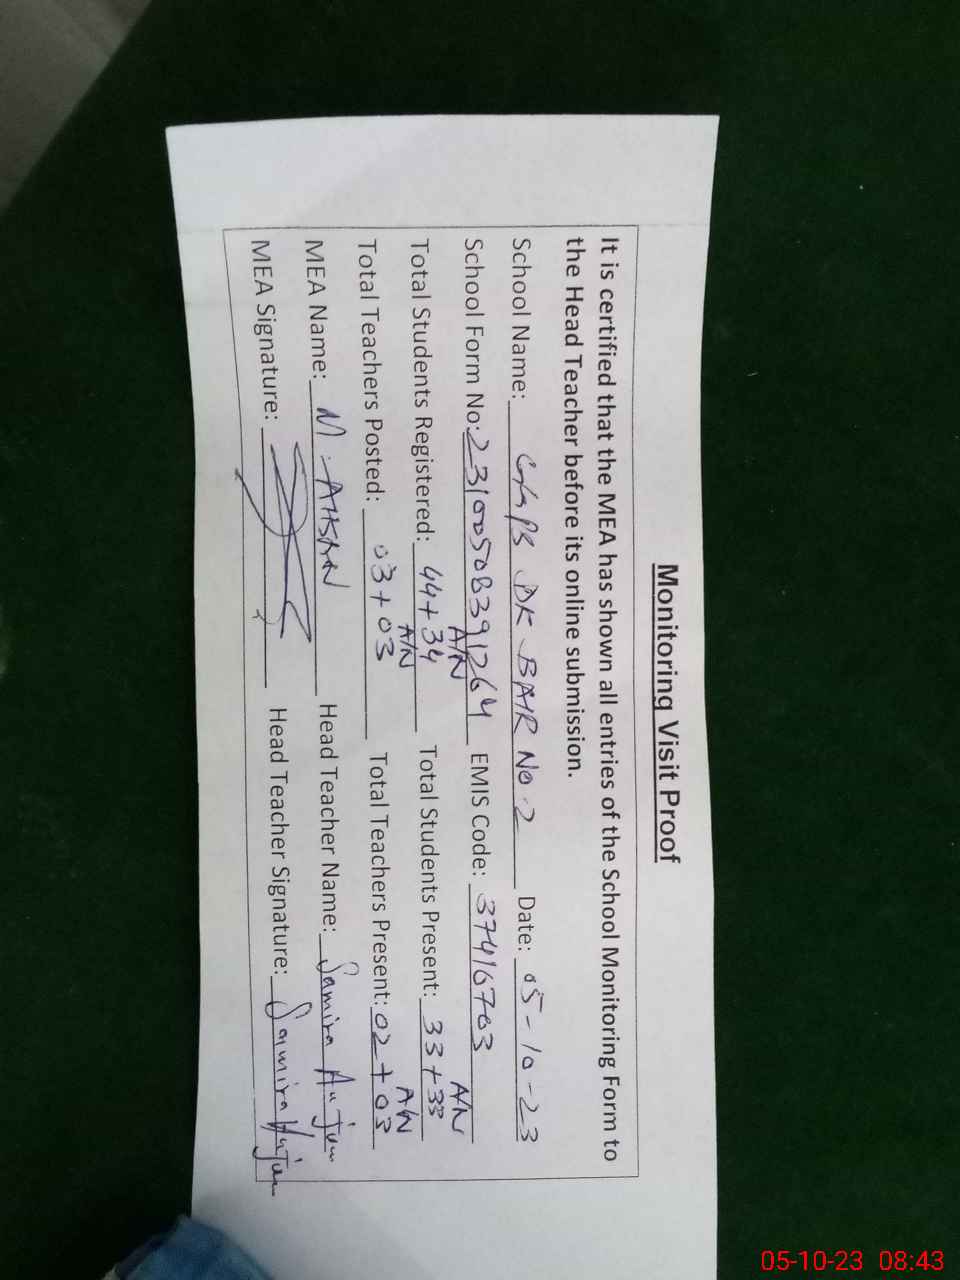 Monitoring Visit Proof
It is certified that the MEA has shown all entries of the School Monitoring Form to
the Head Teacher before its online submission.
School Name: DK BAIR No. 2 Date: 05-10-23
School Form No: 23100508391264 EMIS Code: 37416703
A/N A/N
Total Students Registered: 44+34 Total Students Present: 33+33
A/N A/N
Total Teachers Posted: 03+03 Total Teachers Present: 02+03
MEA Name: M. AHSAN Head Teacher Name: Samira Anjum
MEA Signature: Head Teacher Signature: Samira Anjum
05-10-23 08:43